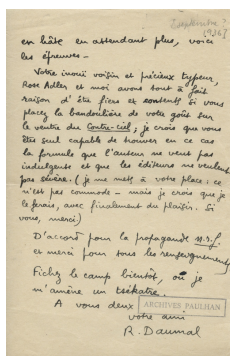 [septembre ?
1936]
en hâte en attendant plus, voici
les épreuves –
Votre inouï voisin et précieux typeur,
Rose Adler et moi avons tout à fait
raison d'être fiers et contents si vous
placez la bandoulière de votre goût sur
le ventre du Contre-ciel ; je crois que vous
êtes seul capable de trouver en ce cas
la formule que l'auteur ne veut pas
indulgente et que les éditeurs ne veulent
pas sévère. (je me mets à votre place : ce
n'est pas commode – mais je crois que je
le ferais, avec finalement du plaisir. Si
vous, merci)
D'accord pour la propagande n.r.f.
et merci pour tous les renseignements
Fichez le camp bientôt, où je
m'amène un tsékatre.
A vous deux
ARCHIVES PAULHAN
votre ami
R. Daumal